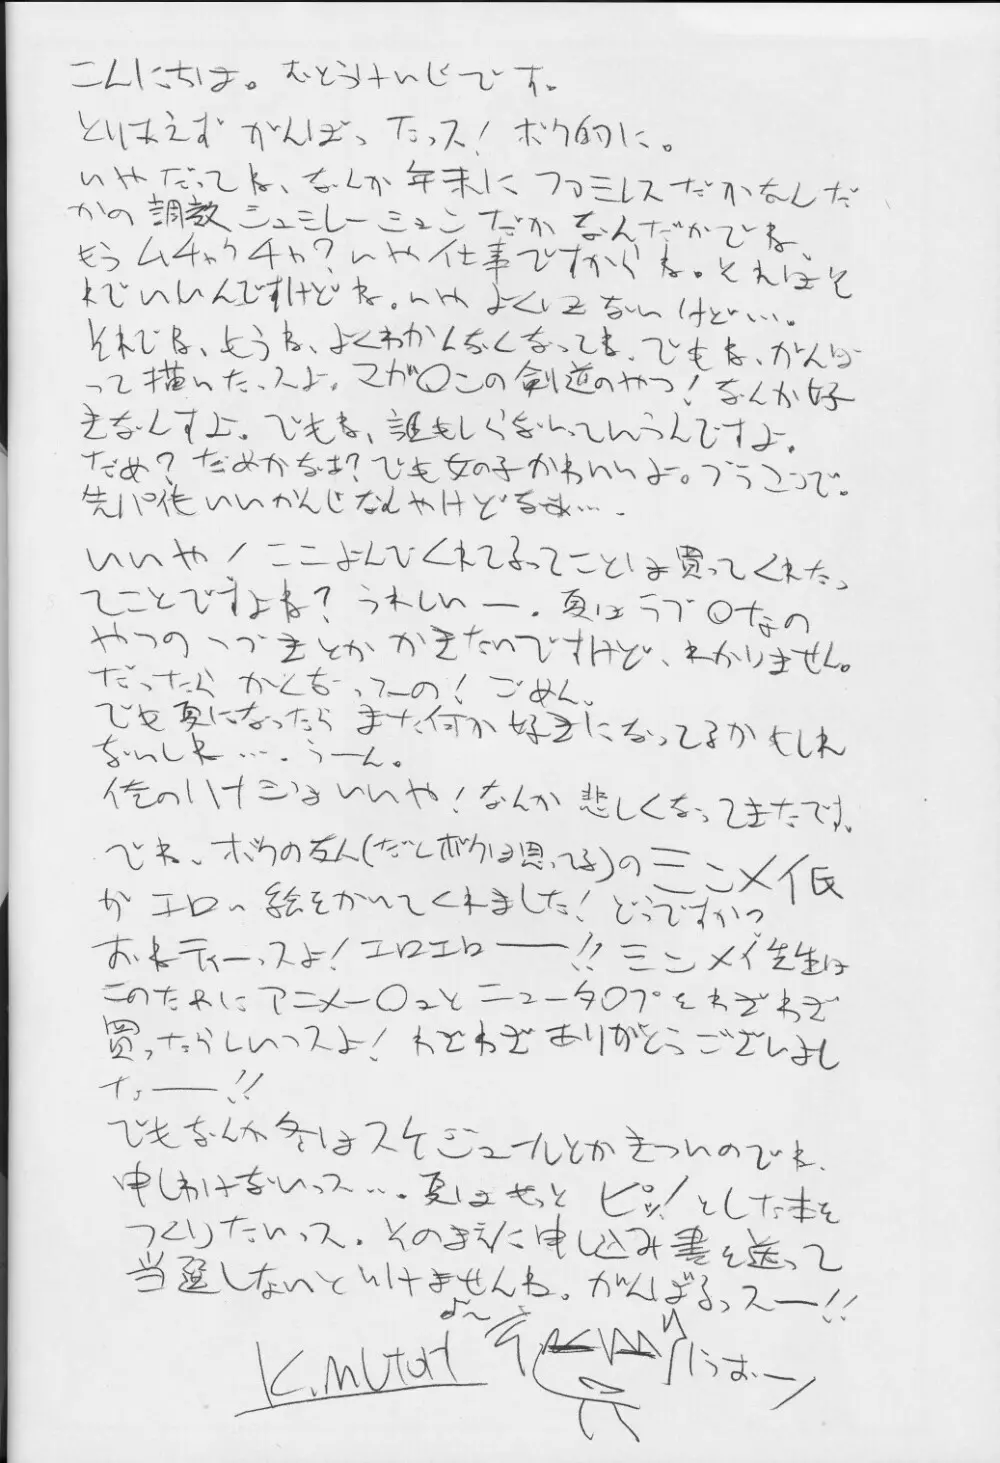 こんにちは。むとうけいじです。
とりあえず がんばったっス！ボク的に。
いやだってね、なんか年末にファミレスだかなんだ
かの調教シュミレーションだかなんだかでね、
もうムチャクチャ？いや仕事ですからね。それはそ
れでいいんですけどね。いや よくはないけど…。
それでね、もうね、よくわかんなくなってね、でもね、がんば
って描いたっスよ。マガ〇ンの剣道のやつ！なんか好
きなんすよ。でもね、誰もしらないっていうんですよ。
だめ？だめかなは？でも女の子かわいいよ。ブラコンで。
先パイもいいかんじなんやけどなぁ…。
いいや！ここよんでくれてるってことは買ってくれたっ
てことですよね？うれしいー。夏はラブ〇なの
やつのつづきとかかきたいですけど、わかりません。
だったらかくなってーの！ごめん。
でも夏になったらまた何か好きになってるかもしれ
ないしね…。うーん。
俺のハナシはいいや！なんか悲しくなってきたです。
でね、ボクの友人(だとボクは思ってる)のミンメイ氏
がエロい絵をかいてくれました！どうですかっ
おねティーっスよ！エロエロー!!ミンメイ先生は
このためにアニメー〇ュとニュータ〇プをわざわざ
買ったらしいっスよ！わざわざありがとうございまし
たー!!
でもなんか冬はスケジュールとかきついのでね、
申しわけないっス…。夏はもっとピッ！とした本を
つくりたいっス。そのまえに申し込み書を送って
当選しないといけませんね。がんばるっスー!!
よ〜
K.MUtoH